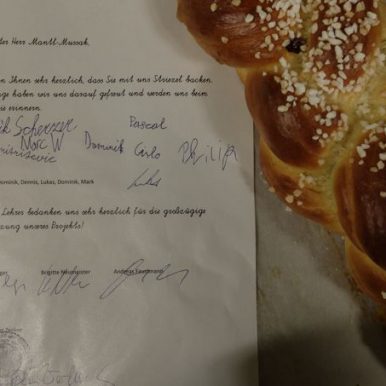 der Herr Mantl-Mussak,
n Ihnen sehr herzlich, dass Sie mit uns Striezel backen.
ge haben wir uns darauf gefreut und werden uns beim
ie erinnern.
Scherzer
Pascal
Marc W
Dominik Carlo Philip
Lukas
ominik, Dennis, Lukas, Dominik, Mark
Lehrer bedanken uns sehr herzlich für die großzügige
zung unseres Projekts!
ger Brigitte Neumeister Andreas